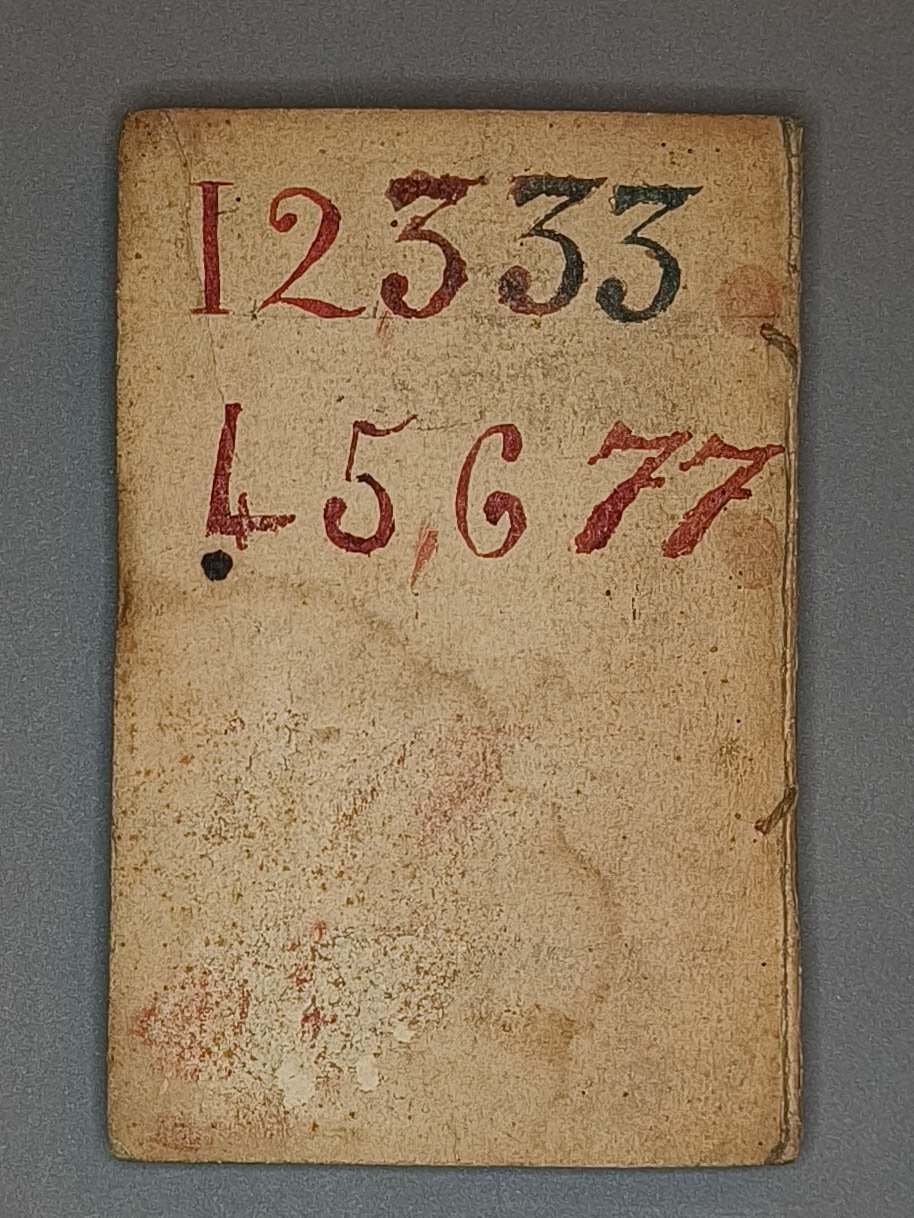 1 2 3 3 3
4 5 6 7 7